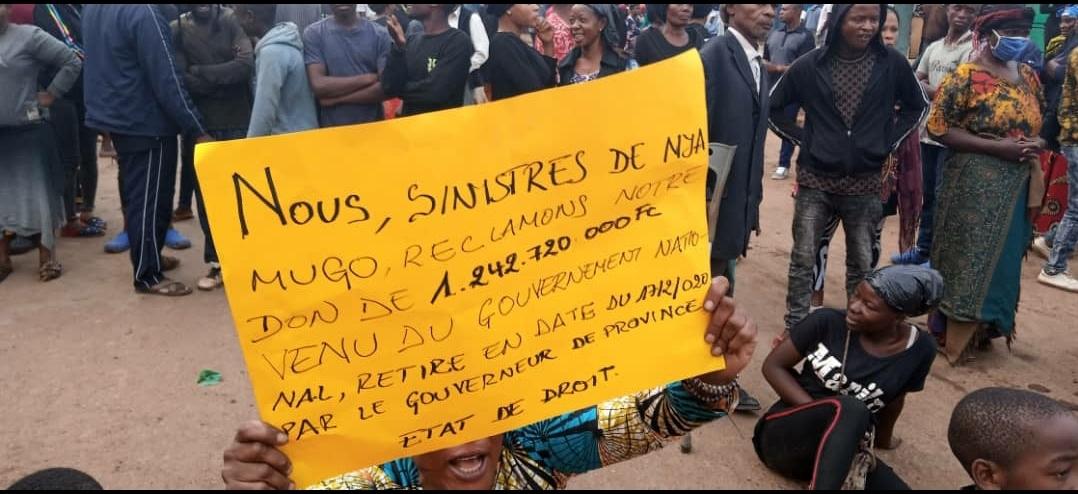 NOUS, SINISTRES DE NYA
MUGO, RECLAMONS NOTRE
DON DE 1.242.720.000 FC
VENU DU GOUVERNEMENT NATIO-
NAL, RETIRE EN DATE DU 17/2/020
PAR LE GOUVERNEUR DE PROVINCE
ETAT DE DROIT.